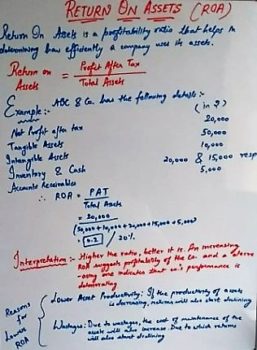 RETURN ON ASSETS (ROA)
Return On Assets is a profitability ratio that helps in
determining how efficiently a company uses its assets.
Return on Assets = Profit After Tax / Total Assets
Example:- ABC & Co. has the following details:-
(in ₹)
Net Profit after tax 20,000
Tangible Assets 50,000
Intangible Assets 10,000
Inventory & Cash 20,000 & 15,000 resp
Accounts Receivables 5,000
∴ ROA = PAT / Total Assets
= 20,000 / (50,000+10,000+20,000+15,000+5,000)
= 0.2 / 20%
Interpretation:- Higher the ratio, better it is. An increasing
ROA suggests profitability of the Co. and a
one indicates that co's performance is
deteriorating
Reasons for Lower ROA
Lower Asset Productivity: If the productivity of assets
is decreasing, returns will also start declining
Wastages: Due to wastages, the cost of maintenance of the
will also increase. Due to which returns
will also start declining